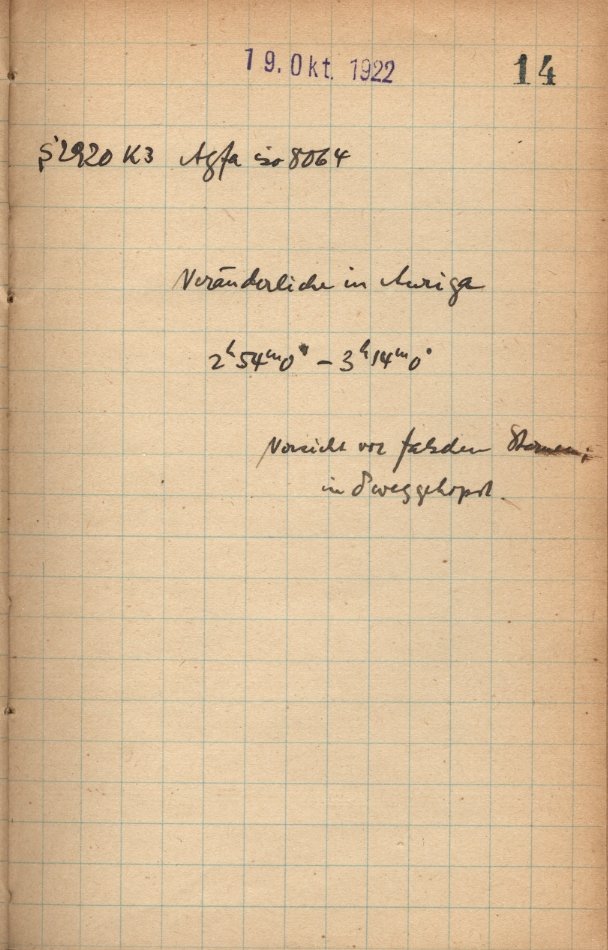 19. Okt. 1922
14
S 2920 K3 Agfa iso 8064
Veränderliche in Auriga
2ʰ54ᵐ0ˢ – 3ʰ14ᵐ0ˢ
Vorsicht vor falschen Sternen;
in δ weggehopst.